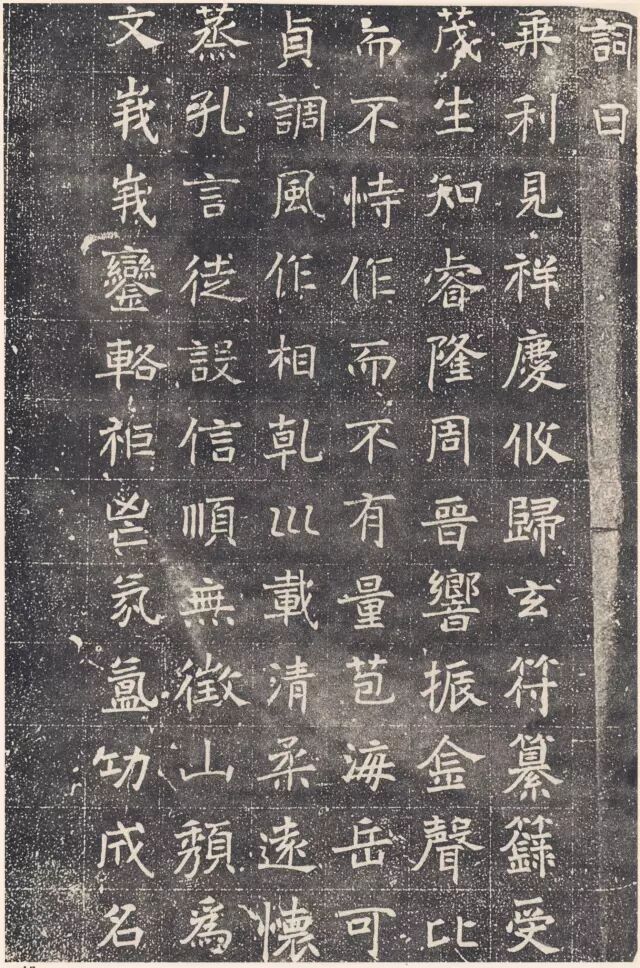 詞曰
乗利見祥慶攸歸玄符纂籙受
茂生知睿隆周晉響振金聲比
而不恃作而不有量苞海岳可
貞調風作相乹巛載清柔遠懷
蒸孔言徒設信順無徵山頹為
文峩峩鑾輅秬鬯氛氳功成名